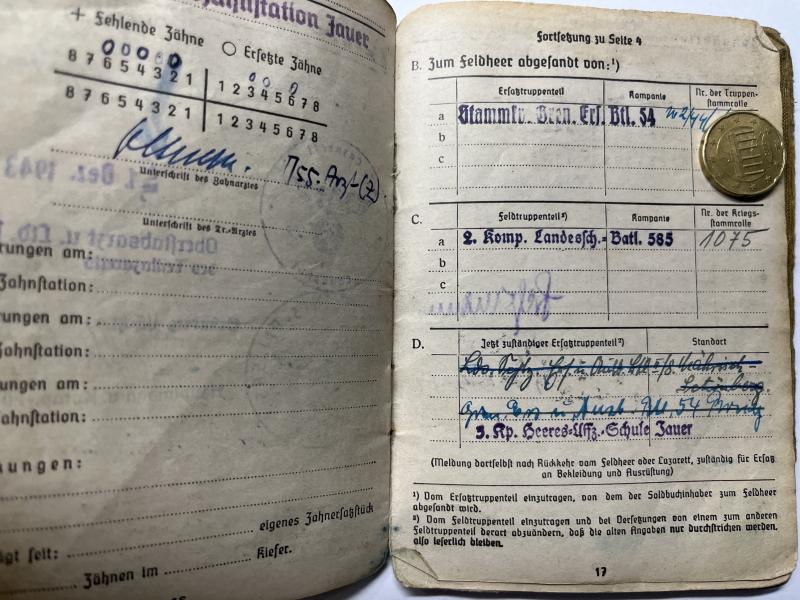 Zahnstation Jauer
+ Fehlende Zähne
O Ersetzte Zähne
8 7 6 5 4 3 2 1 | 1 2 3 4 5 6 7 8
8 7 6 5 4 3 2 1 | 1 2 3 4 5 6 7 8
Unterschrift des Zahnarztes
Unterschrift des Tr.-Arztes
rungen am:
Zahnstation:
rungen am:
Zahnstation:
rungen am:
Zahnstation:
kungen:
eigenes Zahnersatzstück
ägt seit:
Zähnen im Kiefer.
Fortsetzung zu Seite 4
B. Zum Feldheer abgesandt von:¹)
Ersatztruppenteil Kompanie Nr. der Truppen-
stammrolle
a Stammkp. Gren. Ers. Btl. 54
b
c
C. Feldtruppenteil²) Kompanie Nr. der Kriegs-
stammrolle
a 2. Komp. Landessch.= Batl. 585 1075
b
c
D. Jetzt zuständiger Ersatztruppenteil²) Standort
3. Kp. Heeres-Uffz.-Schule Jauer
(Meldung dortselbst nach Rückkehr vom Feldheer oder Lazarett, zuständig für Ersatz
an Bekleidung und Ausrüstung)
¹) Vom Ersatztruppenteil einzutragen, von dem der Soldbuchinhaber zum Feldheer
abgesandt wird.
²) Vom Feldtruppenteil einzutragen und bei Versetzungen von einem zum anderen
Feldtruppenteil derart abzuändern, daß die alten Angaben nur durchstrichen werden,
also leserlich bleiben.
17